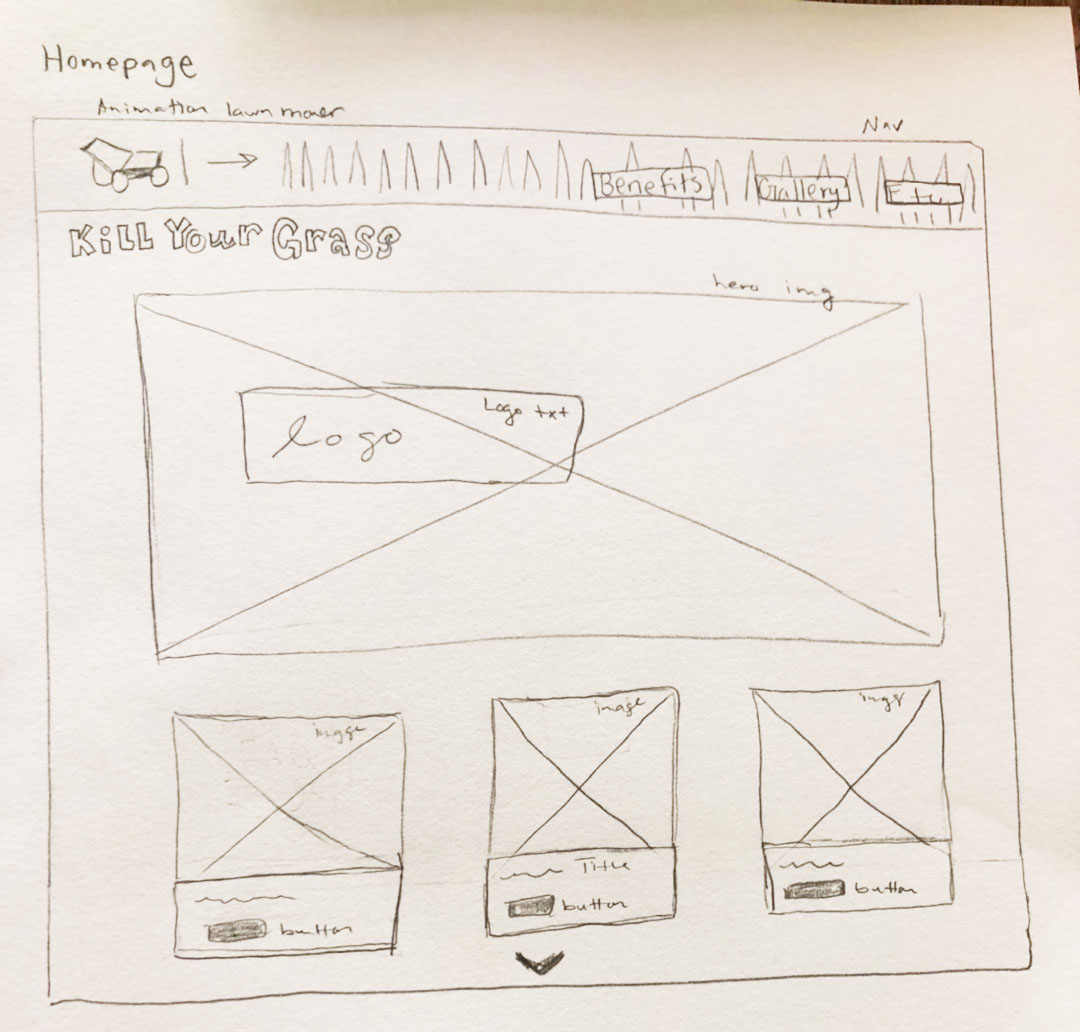 Homepage
Animation lawn mower
Nav
Benefits
Gallery
Etc.
Kill Your Grass
hero img
Logo txt
logo
image
image
image
Title
button
button
button